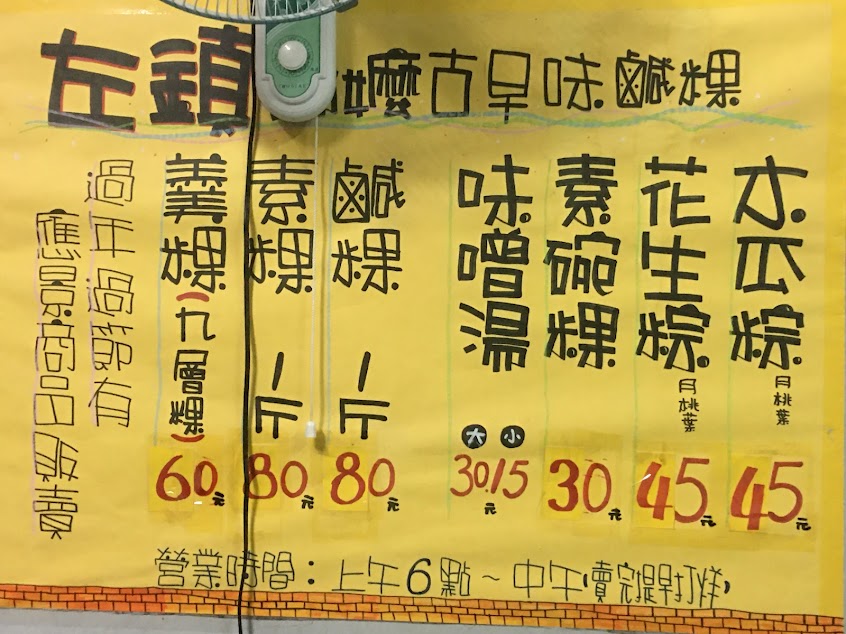 左鎮麼古早味鹹粿
木瓜粽 月桃葉 45元
花生粽 月桃葉 45元
素碗粿 30元
味噌湯 大 小 30.15元
鹹粿 一斤 80元
素粿 一斤 80元
羹粿(九層粿) 60元
過年過節有
應景商品販賣
營業時間：上午6點~中午(賣完提早打烊)